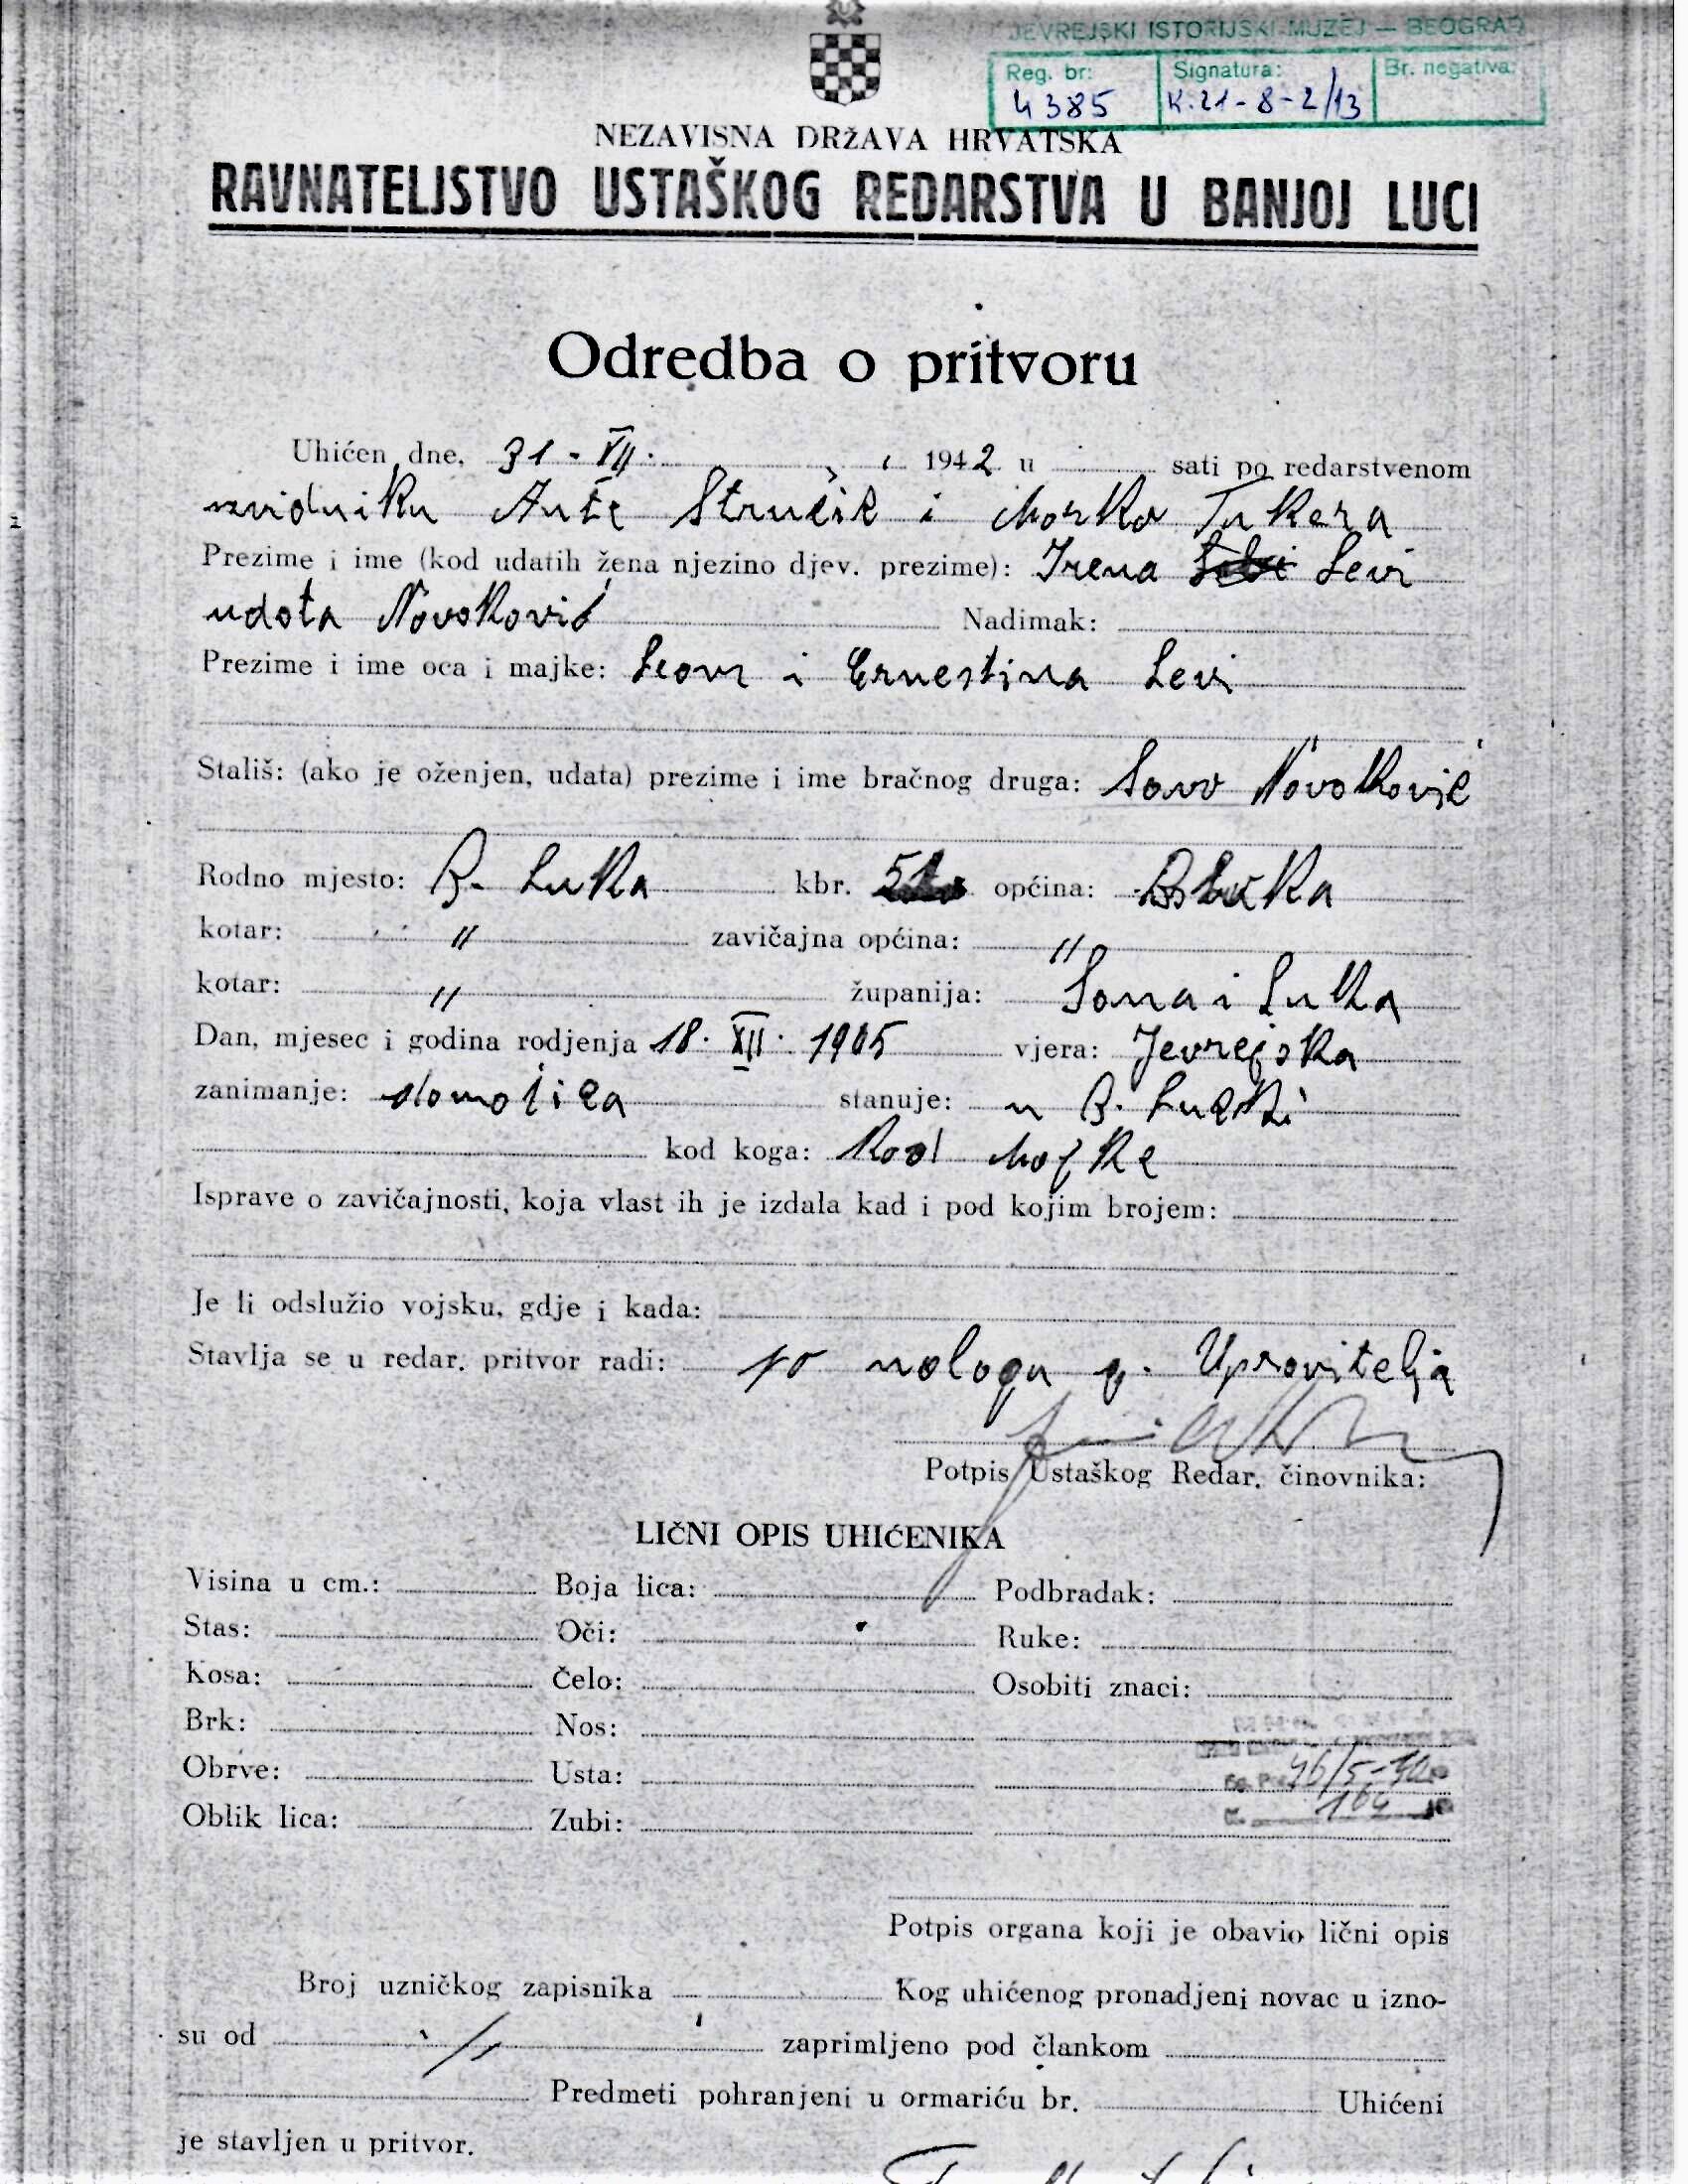 JEVREJSKI ISTORIJSKI MUZEJ — BEOGRAD
Reg. br: 4385 Signatura: K.21-8-2/13 Br. negativa:
NEZAVISNA DRŽAVA HRVATSKA
RAVNATELJSTVO USTAŠKOG REDARSTVA U BANJOJ LUCI
Odredba o pritvoru
Uhićen dne, 31 - VII. 1942 u sati po redarstvenom
izvidniku Ante i Marko
Prezime i ime (kod udatih žena njezino djev. prezime): Irena Levi
udata Novaković Nadimak:
Prezime i ime oca i majke: Leon i Ernestina Levi
Stališ: (ako je oženjen, udata) prezime i ime bračnog druga: Savo Novaković
Rodno mjesto: B. Luka kbr. općina: B Luka
kotar: " zavičajna općina: "
kotar: " županija: Sana i Luka
Dan, mjesec i godina rodjenja 18. XII. 1905 vjera: Jevrejska
zanimanje: domaćica stanuje: u B. Luci
kod koga: kod majke
Isprave o zavičajnosti, koja vlast ih je izdala kad i pod kojim brojem:
Je li odslužio vojsku, gdje i kada:
Stavlja se u redar. pritvor radi: po nalogu g. Upravitelja
Potpis Ustaškog Redar. činovnika:
LIČNI OPIS UHIĆENIKA
Visina u cm.: Boja lica: Podbradak:
Stas: Oči: Ruke:
Kosa: Čelo: Osobiti znaci:
Brk: Nos:
Obrve: Usta:
Oblik lica: Zubi:
Potpis organa koji je obavio lični opis
Broj uzničkog zapisnika Kog uhićenog pronadjeni novac u izno-
su od zaprimljeno pod člankom
Predmeti pohranjeni u ormariću br. Uhićeni
je stavljen u pritvor.